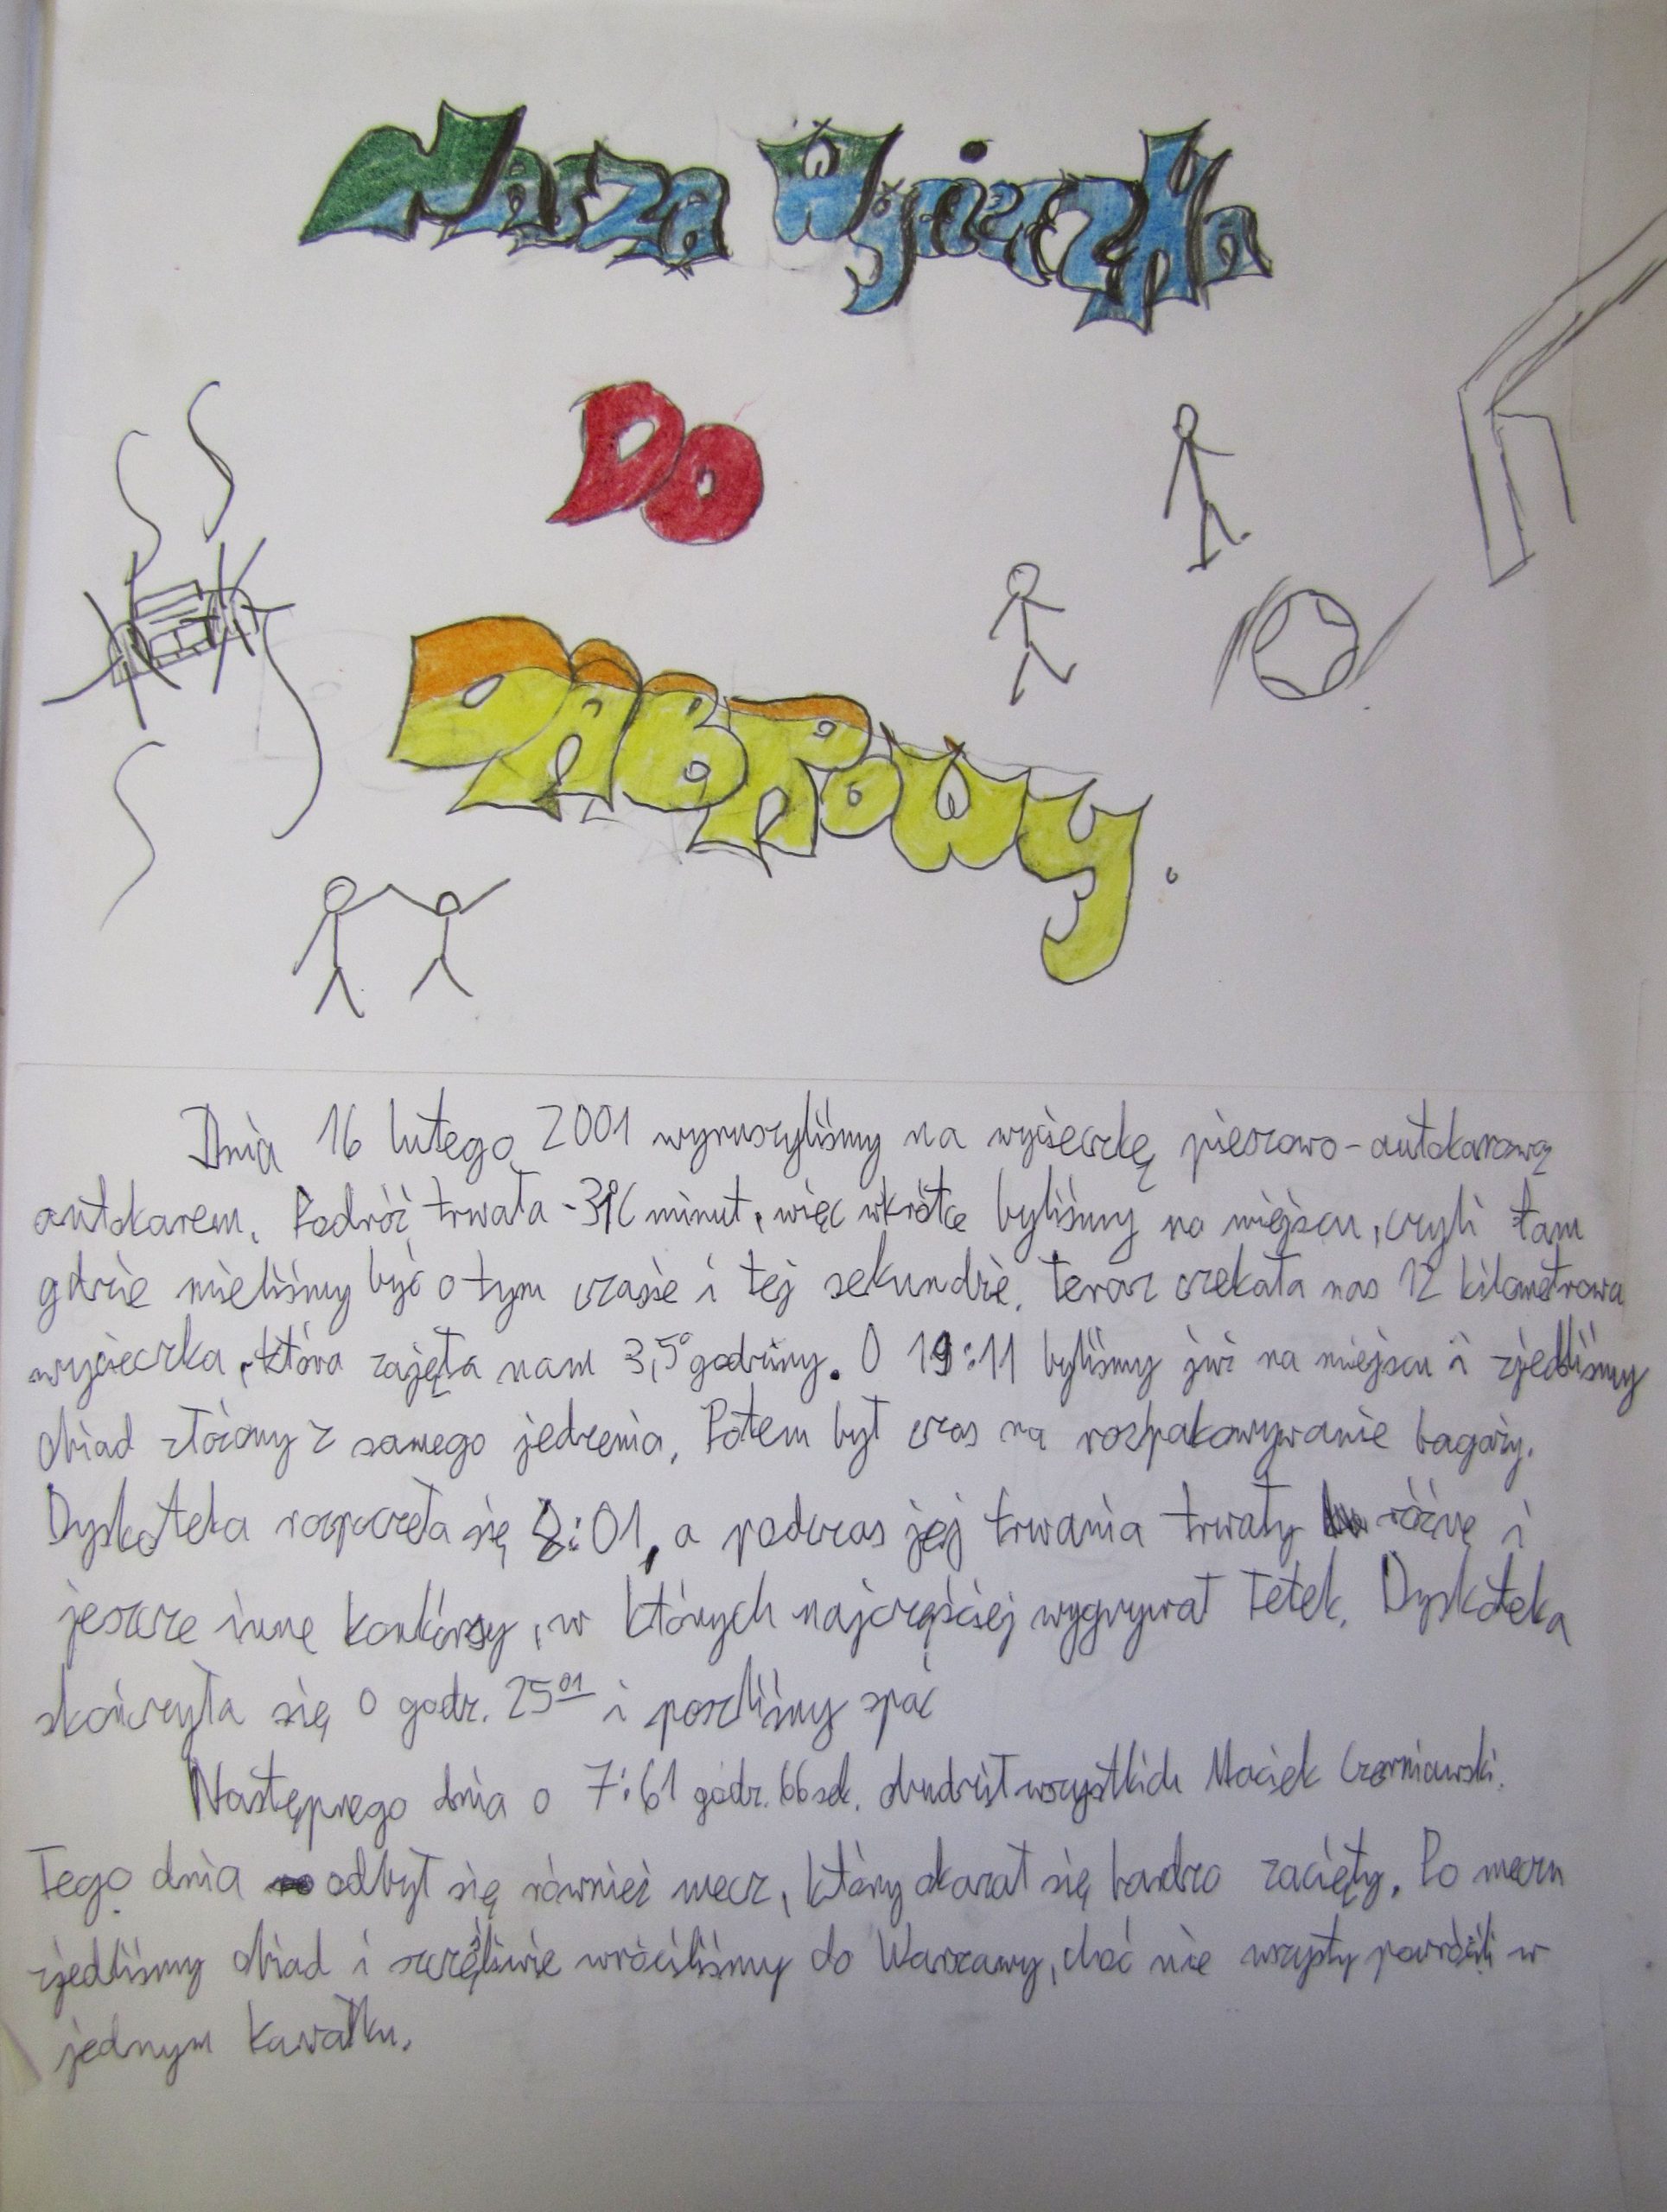 Nasza Wycieczka
Do
DĄBROWY.
Dnia 16 lutego 2001 wyruszyliśmy na wycieczkę pieszowo-autokarową
autokarem. Podróż trwała minut, więc wkrótce byliśmy na miejscu, czyli tam
gdzie mieliśmy być o tym czasie i tej sekundzie. Teraz czekała nas 12 kilometrowa
wycieczka, która zajęła nam 3,5° godziny. O 19:11 byliśmy już na miejscu i zjedliśmy
obiad złożony z samego jedzenia. Potem był czas na rozpakowywanie bagaży.
Dyskoteka rozpoczeła się 8:01, a podczas jej trwania trwały różne i
jeszcze inne konkórsy, w których najczęściej wygrywał Tetek. Dyskoteka
skończyła się o godz. 25 01 i poszliśmy spać
Następnego dnia o 7:61 godz. 66 sek. obudził wszystkich Maciek Czerniawski.
Tego dnia odbył się również mecz, który okazał się bardzo zacięty. Po meczu
zjedliśmy obiad i szczęśliwie wróciliśmy do Warszawy, choć nie wszyscy powrócili w
jednym kawałku.